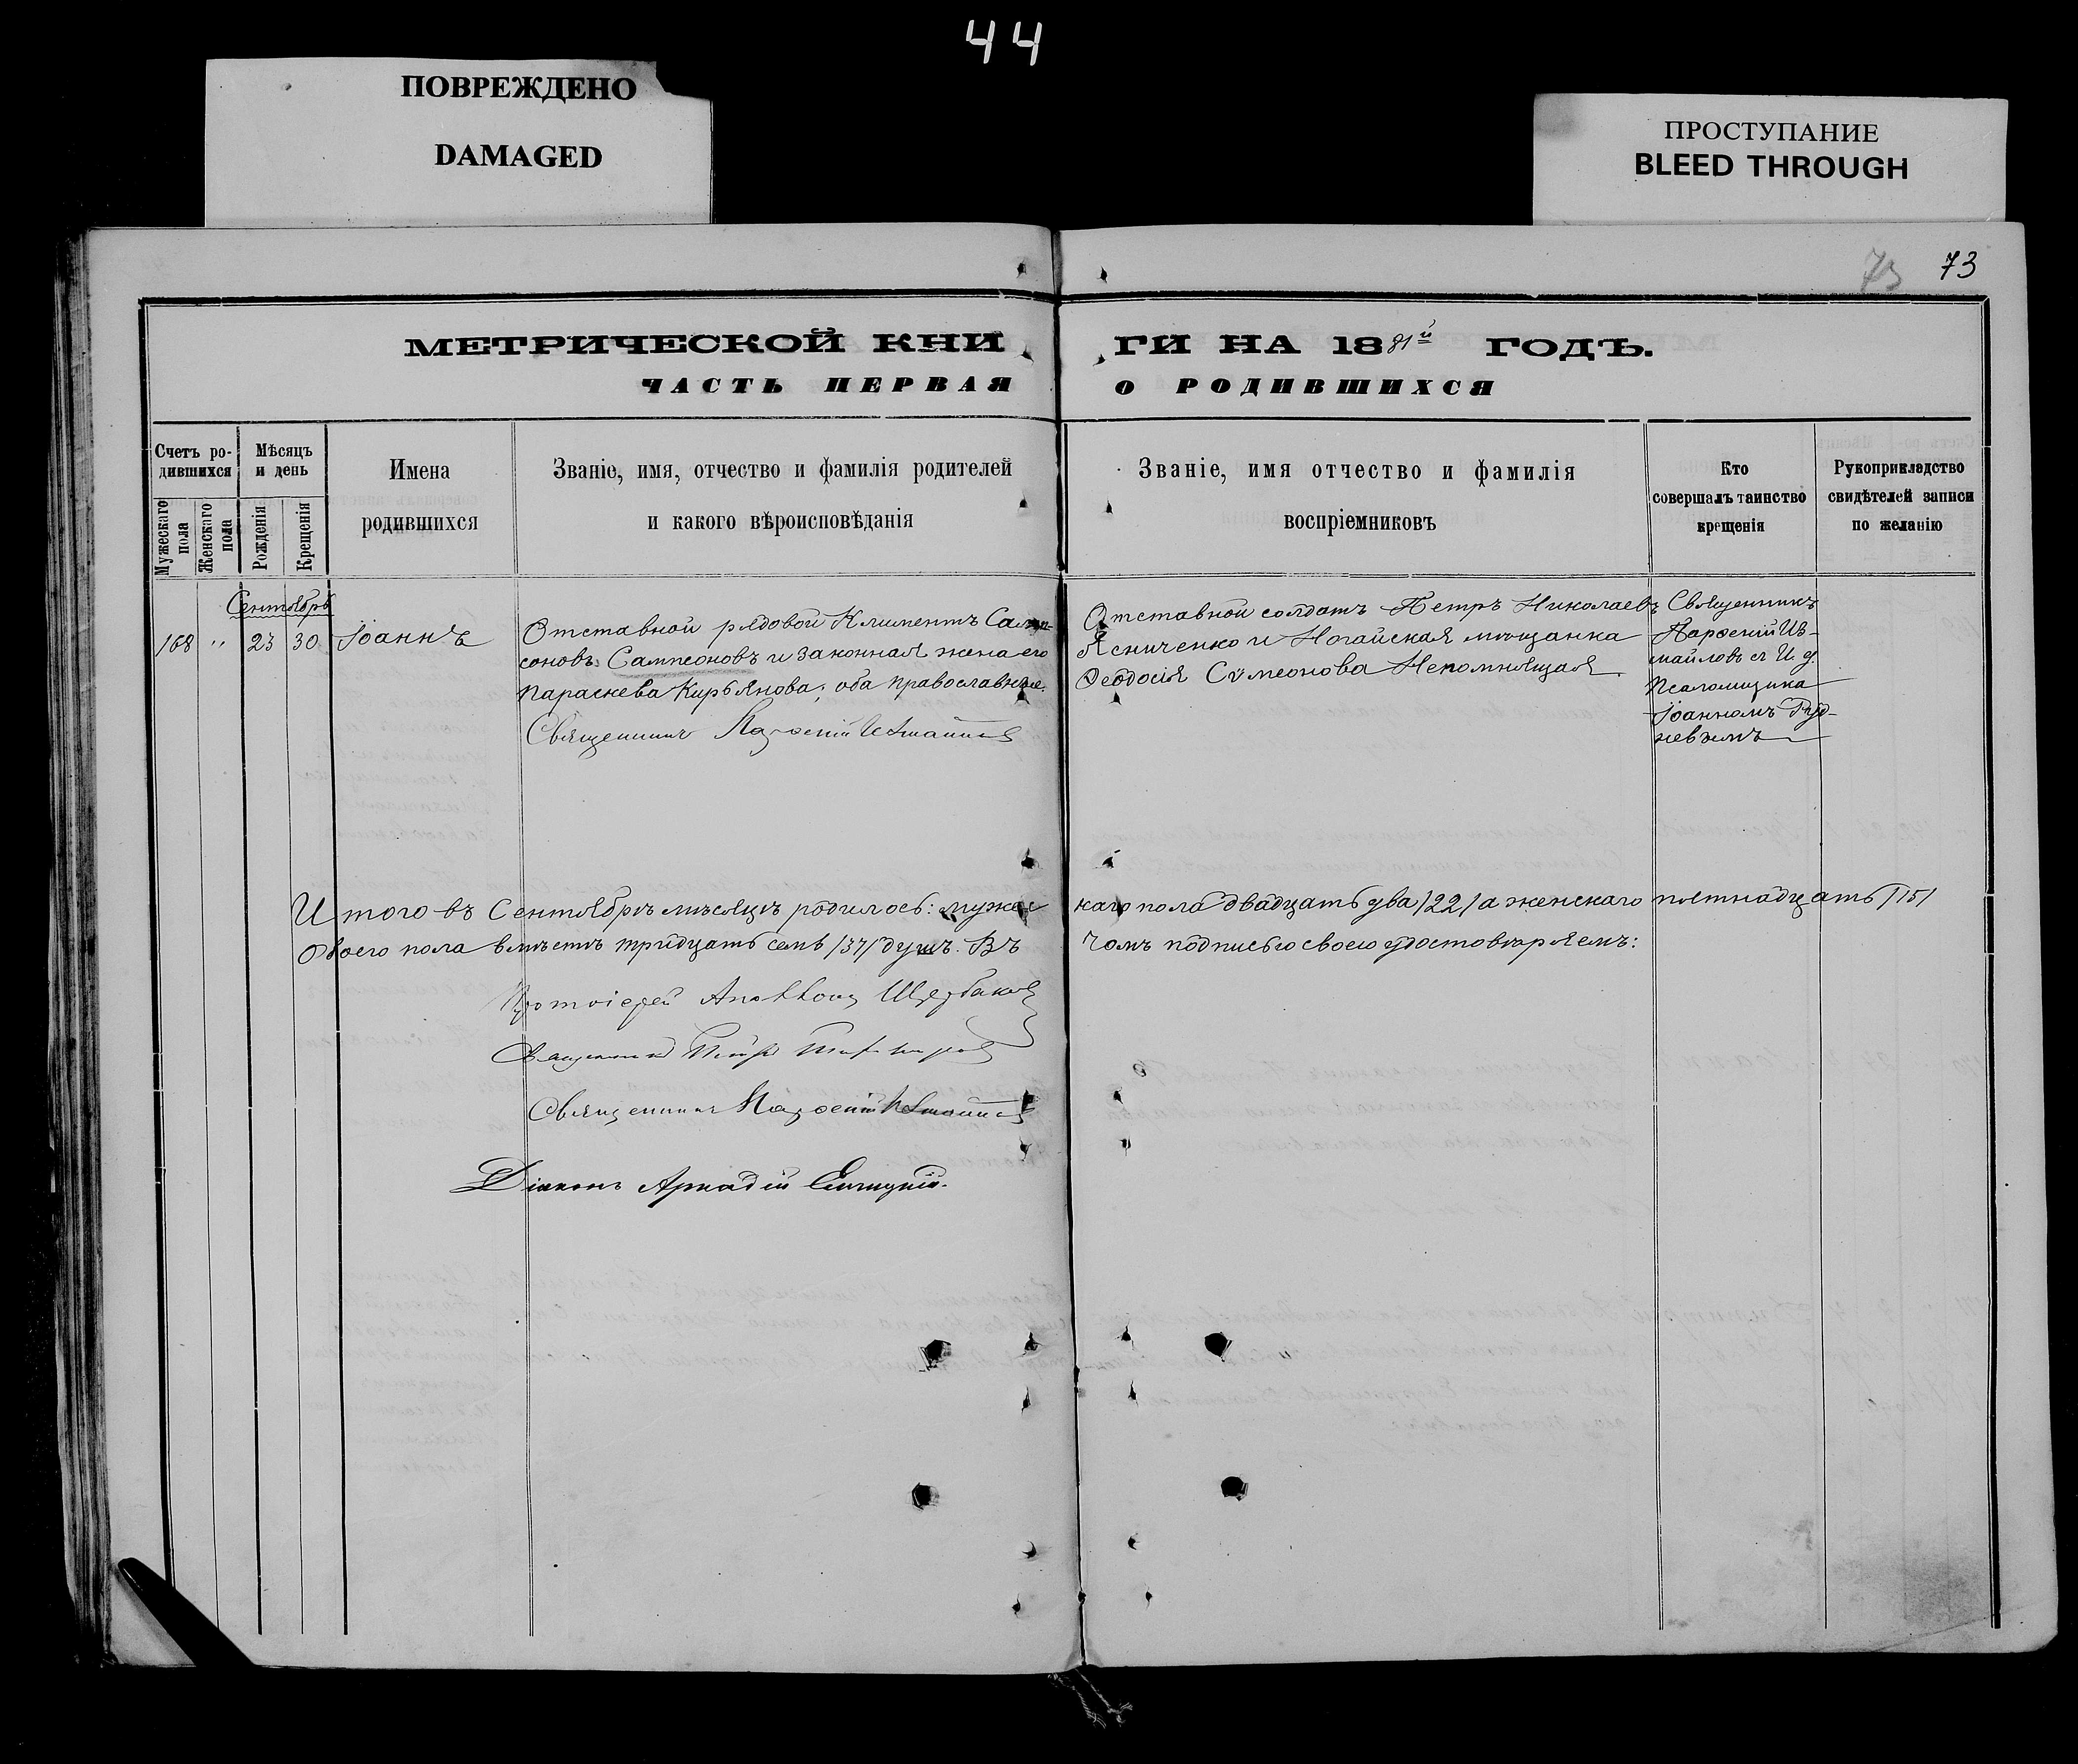 44
ПОВРЕЖДЕНО
DAMAGED
ПРОСТУПАНИЕ
BLEED THROUGH
73 73
МЕТРИЧЕСКОЙ КНИ
ГИ НА 1881й ГОДЪ.
ЧАСТЬ ПЕРВАЯ
О РОДИВШИХСЯ
Счетъ ро-
дившихся
Мужескаго
пола
Женскаго
пола
Мѣсяцъ
и день
Рожденія
Крещенія
Имена
родившихся
Званіе, имя, отчество и фамилія родителей
и какого вѣроисповѣданія
Званіе, имя отчество и фамилія
воспріемниковъ
Кто
совершалъ таинство
крещенія
Рукоприкладство
свидѣтелей записи
по желанію
Сентябрь
168 " 23 30 Іоаннъ
Отставной рядовой Климентъ Самп-
соновъ Сампсоновъ и законная жена его
Параскева Кирьянова; оба православные.
Священникъ Парѳеній Измайловъ
Отставной солдатъ Петръ Николаевъ
Ясниченко и Ногайская мѣщанка
Ѳеодосія Сѵмеонова Непомнящая.
Священникъ
Парѳеній Из-
майловъ съ И. д.
Псаломщика
Іоанномъ Руд-
невымъ
Итого въ Сентябрѣ мѣсяцѣ родилось: мужес
каго пола двадцать два /22/ а женскаго пятнадцать /15/
Обоего пола вмѣстѣ тридцать семь /37/ душъ. Въ
чомъ подписью своею удостовѣряемъ:
Протоіерей Щербаковъ
Священникъ
Священникъ Парѳеній Измайловъ
Діаконъ Аркадій